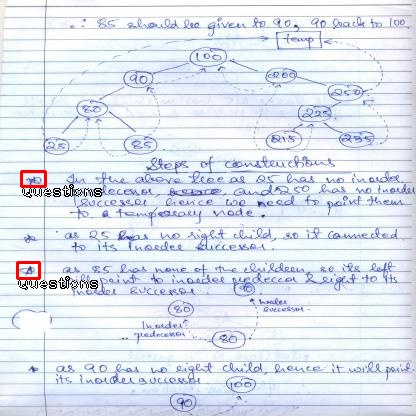 ∴ 85 should be given to 90, 90 back to 100.
temp
100
90 200
80 250
225
25 85 215 235
Steps of constructions
In the above tree as 25 has no inorder
Questions
predecessor, and 250 has no inorder
successor, hence we need to point them
to a temporary node.
as 25 has no right child, so it connected
to its inorder successor.
as 85 has none of the children, so its left
Questions
will point to inorder predeccor & right to its
inorder successor.
90
80
Inorder successor
Inorder predecessor
80
as 90 has no right child, hence it will point
its inorder successor
100
90